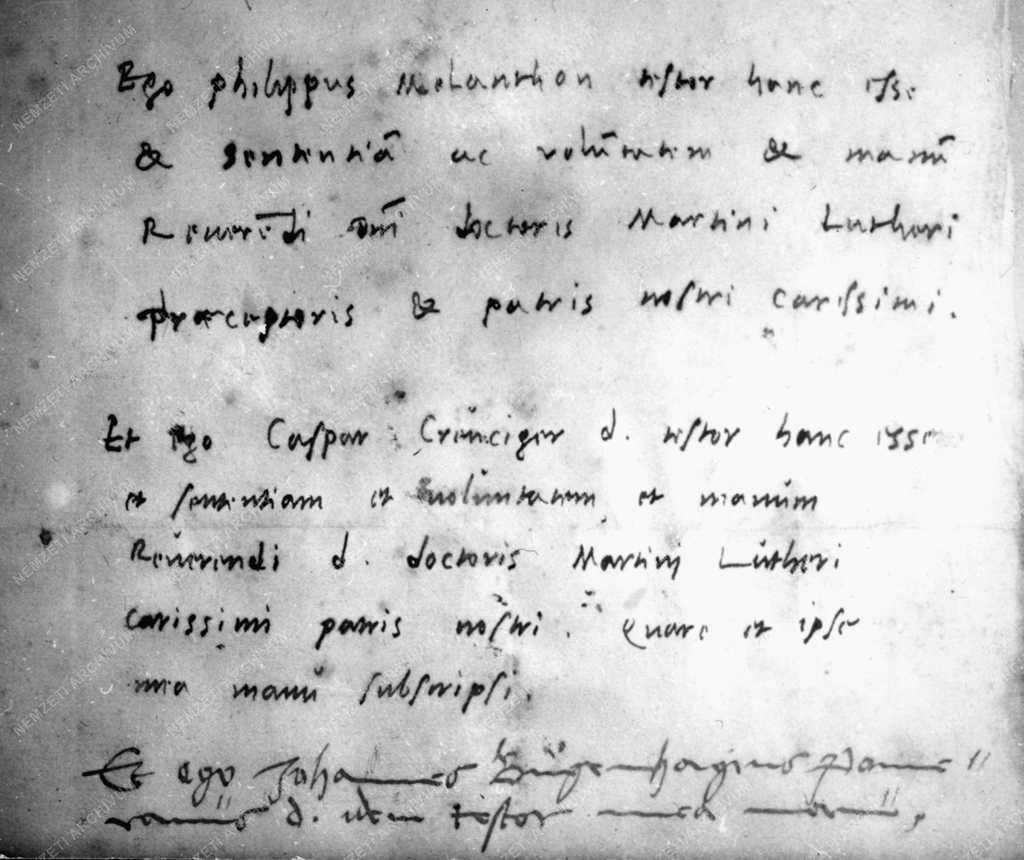 Ego philippus Melanthon testor hanc esse
& sententiā ac volūtatem & manū
Reverēdi dn̄i doctoris Martini Lutheri
præceptoris & patris nostri carissimi.
Et ego Caspar Creuciger d. testor hanc esse
et sententiam et voluntatem et manum
Reuerendi d. doctoris Martinj Lutheri
carissimi patris nostri. Quare et ipse
mea manu subscripsi.
Et ego Johannes Bugenhagius Pome"
ranus d. idem testor mea manu,
NEMZETI ARCHÍVUM